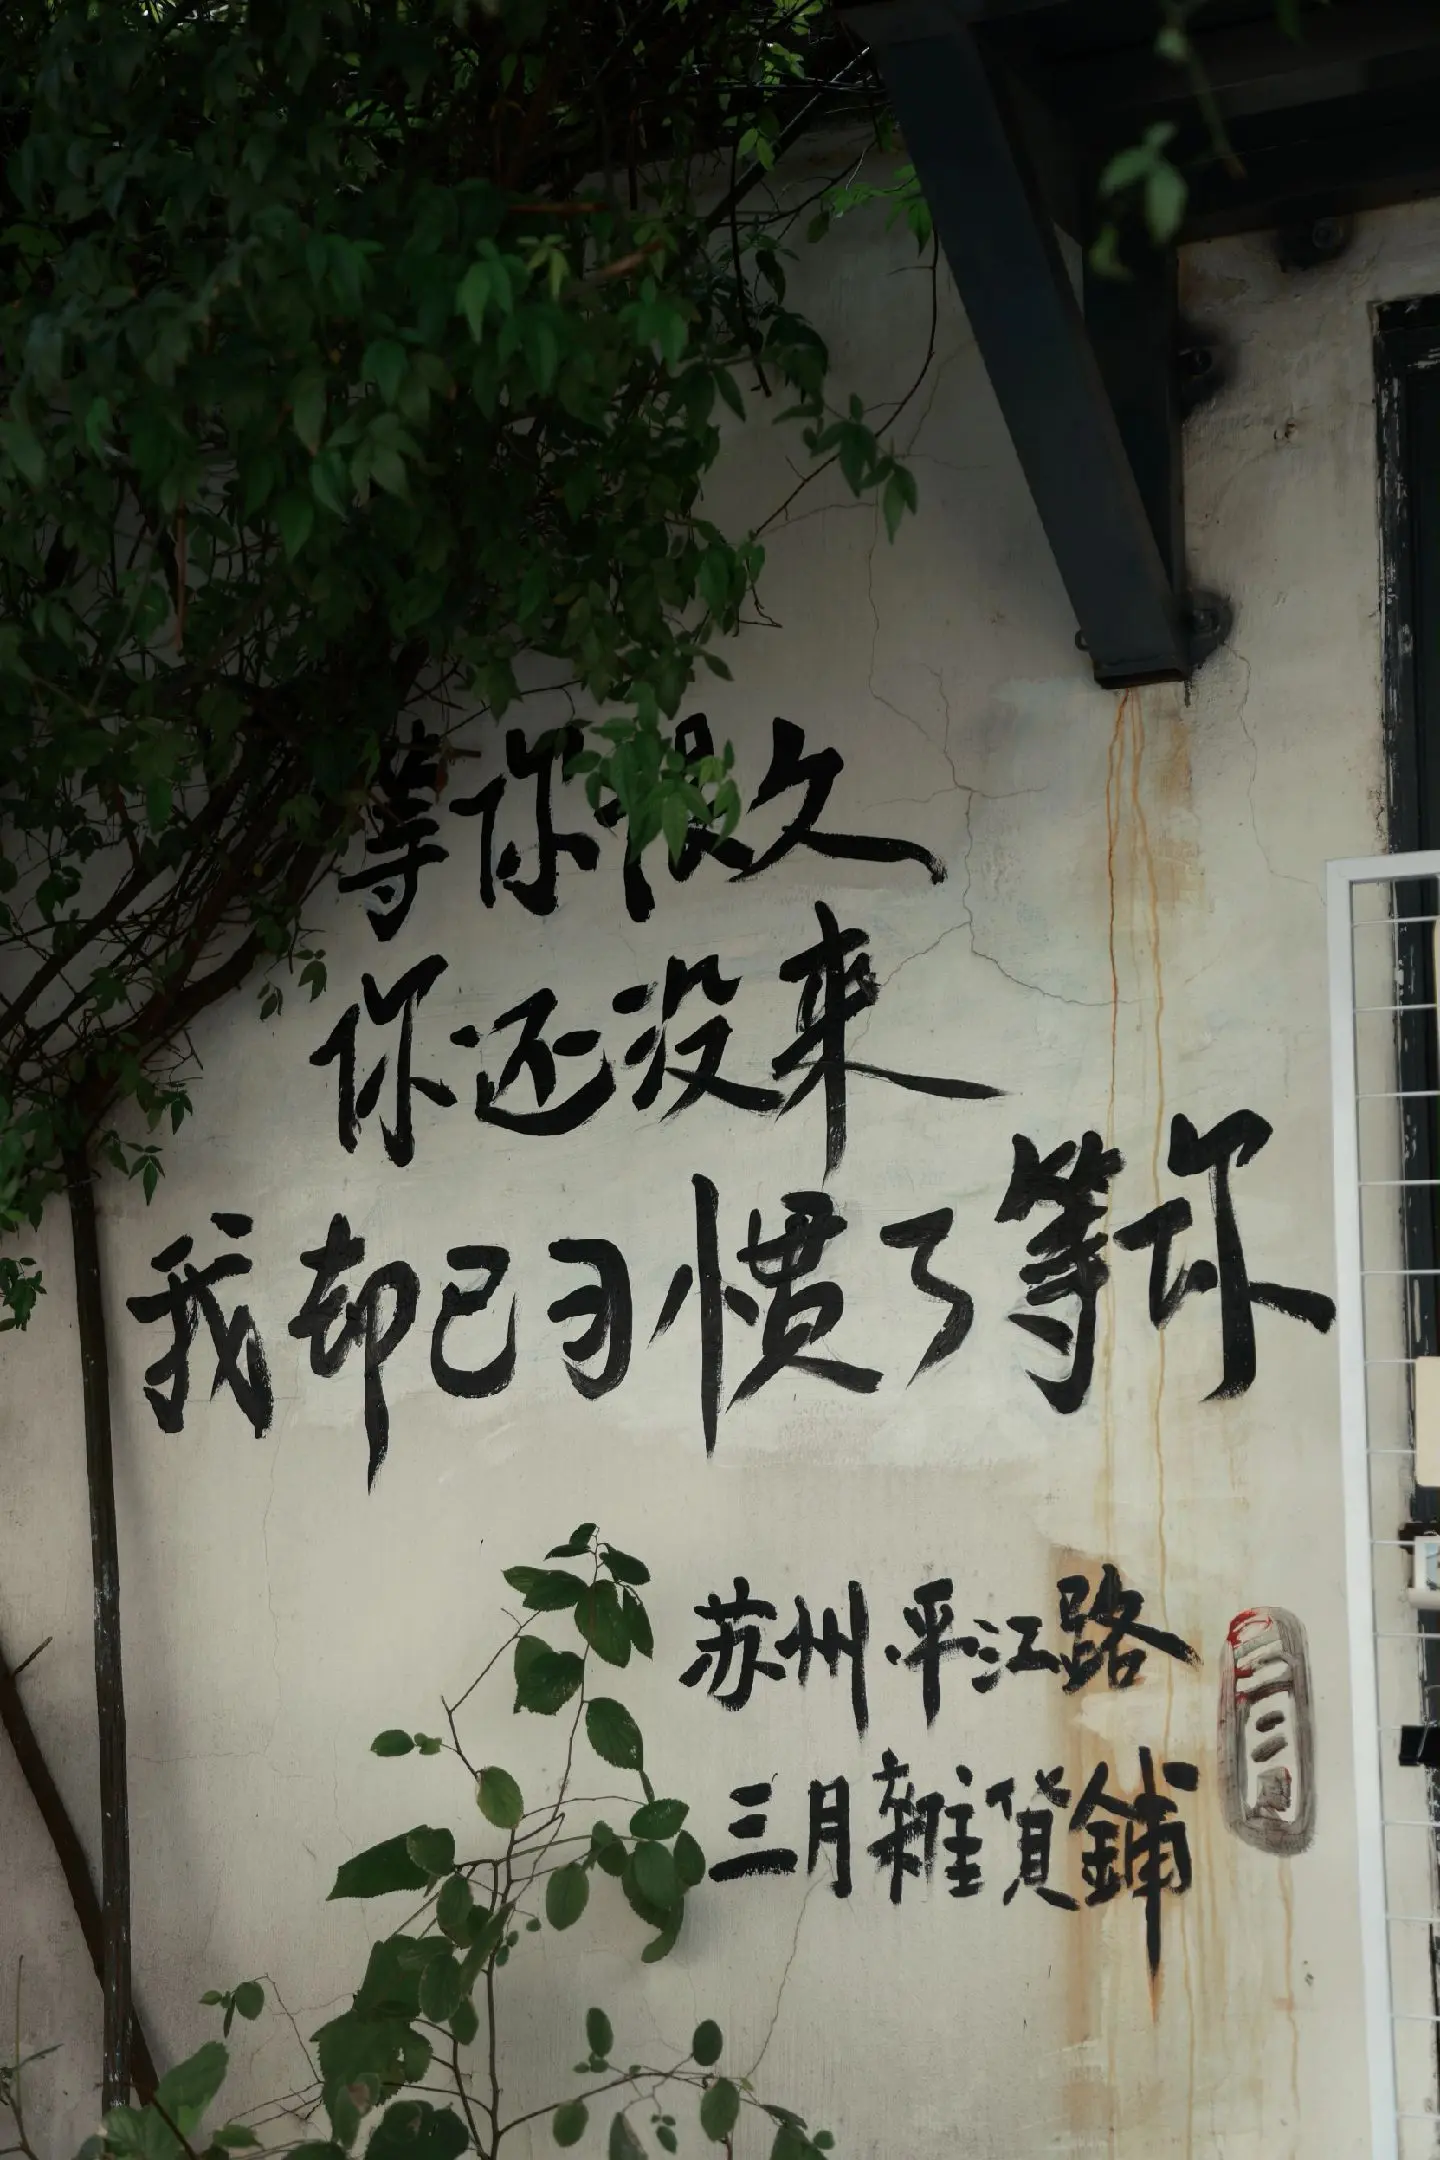 等你很久
你还没来
我却已习惯了等你
苏州·平江路
三月雜貨鋪